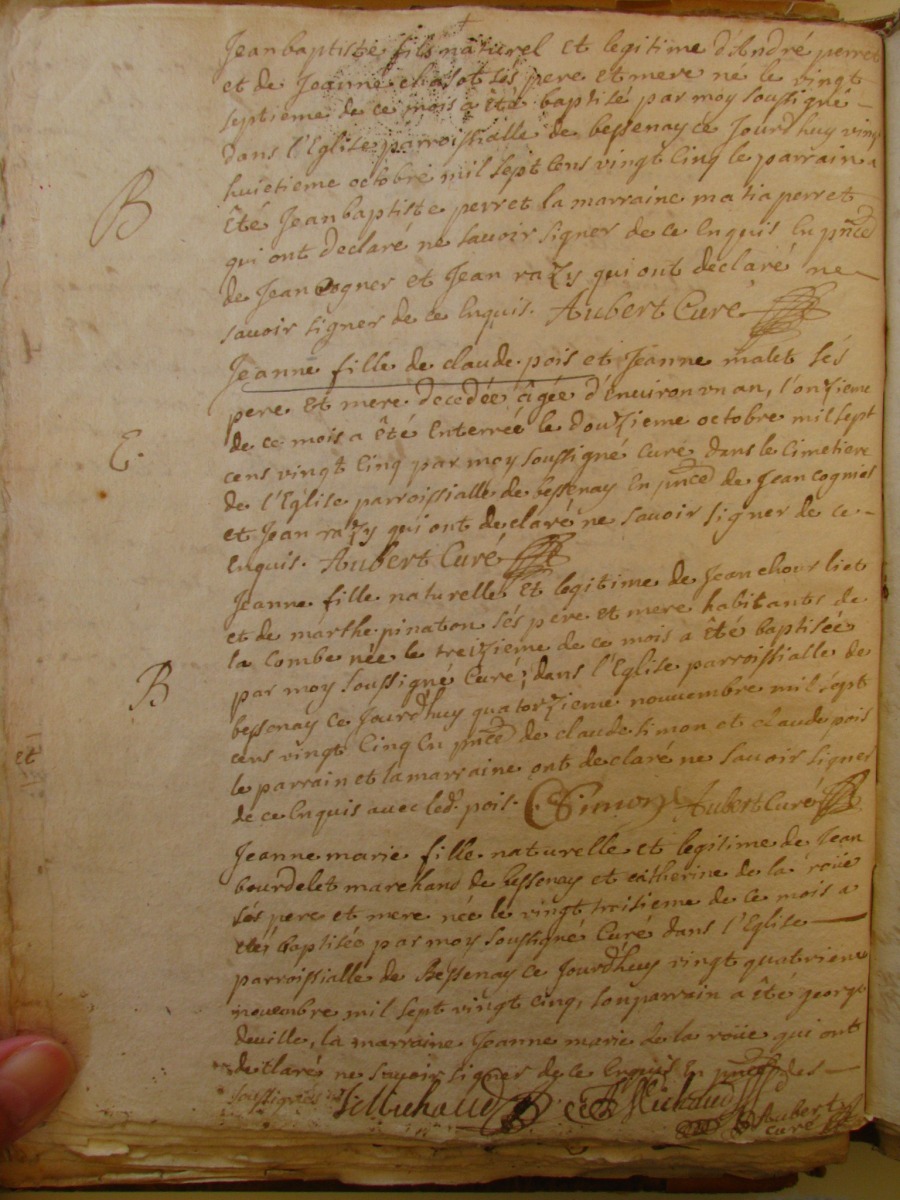 Jean baptiste fils naturel et legitime d'André perret
et de Jeanne chasot ses pere et mere ne le vingt
septieme de ce mois a été baptisé par moy soussigné
dans l'Eglise parroissialle de bessenay ce Jourdhuy vingt
huictieme octobre mil sept cens vingt cinq le parrain a
B
été Jean baptiste perret la marraine matia perret
qui ont declaré ne savoir signer de ce Enquis En pnce
de Jean Cogner et Jean razy qui ont declaré ne
savoir signer de ce Enquis. Aubert Curé
Jeanne fille de claude pois et Jeanne malet sés
pere et mere decedée âgée d'Environ un an, l'onzieme
de ce mois a été Enterrée le douzieme octobre mil sept
E.
cens vingt cinq par moy soussigné Curé dans le Cimetiere
de l'Eglise parroissialle de bessenay En pnce de Jean cogniet
et Jean razy qui ont declaré ne savoir signer de ce
Enquis. Aubert Curé
Jeanne fille naturelle et legitime de Jean chourliet
et de marthe pinaton sés pere et mere habitants de
la Combe née le treizieme de ce mois a êté baptisée
B
par moy soussigné Curé, dans l'Eglise parroissialle de
bessenay ce Jourdhuy quatorzieme nouuembre mil sept
cens vingt cinq En pnce de claude simon et claude pois
et
le parrain et la marraine ont declaré ne savoir signer
de ce Enquis avec led. pois. C Simon Aubert Curé
Jeanne marie fille naturelle et legitime de Jean
bourdelet marchand de bessenay et catherine de la roüe
sés pere et mere née le vingt troisieme de ce mois a
été baptisée par moy soussigné Curé dans l'Eglise
parroissialle de Bessenay ce Jourdhuy vingt quatrieme
novembre mil sept vingt cinq, son parrain a êté george
deville, la marraine Jeanne marie de la roüe qui ont
declaré ne savoir signer de ce Enquis En pnce des
soussignés Michaud Michaud Aubert
curé